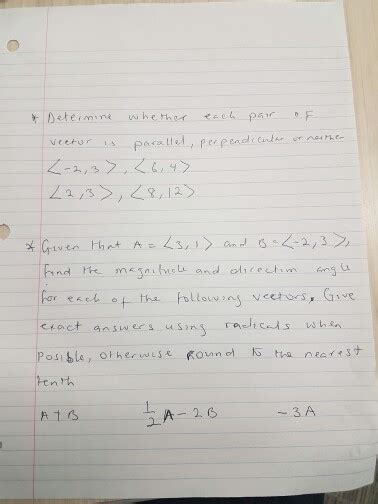 * Determine whether each pair of
vector is parallel, perpendicular or neither
<-2,3>, <6,4>
<2,3>, <8,12>
* Given that A = <3,1> and B = <-2,3>,
find the magnitude and direction angle
for each of the following vectors. Give
exact answers using radicals when
posible, otherwise round to the nearest
tenth
A+B 1/2 A-2B -3A